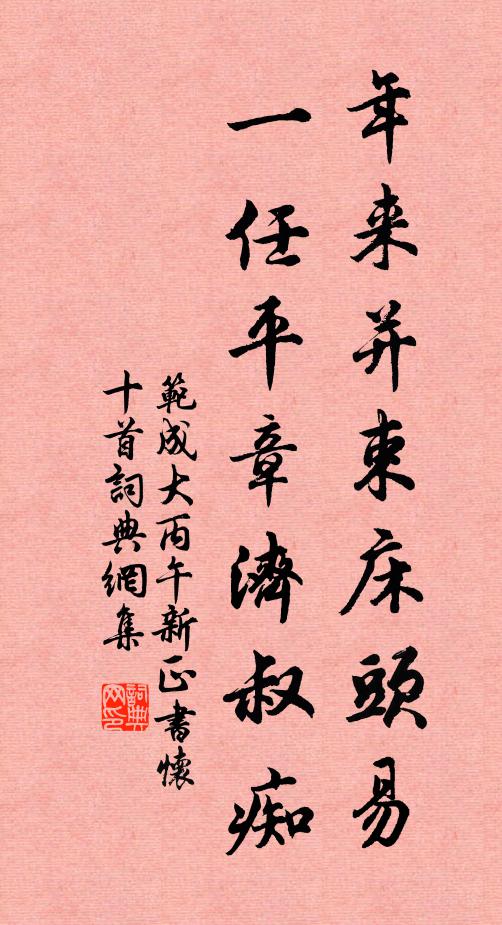 年来并束床頭易
一任平章濟叔痴
範成大丙午新正書懷
十首詞典網集
詞典
网印